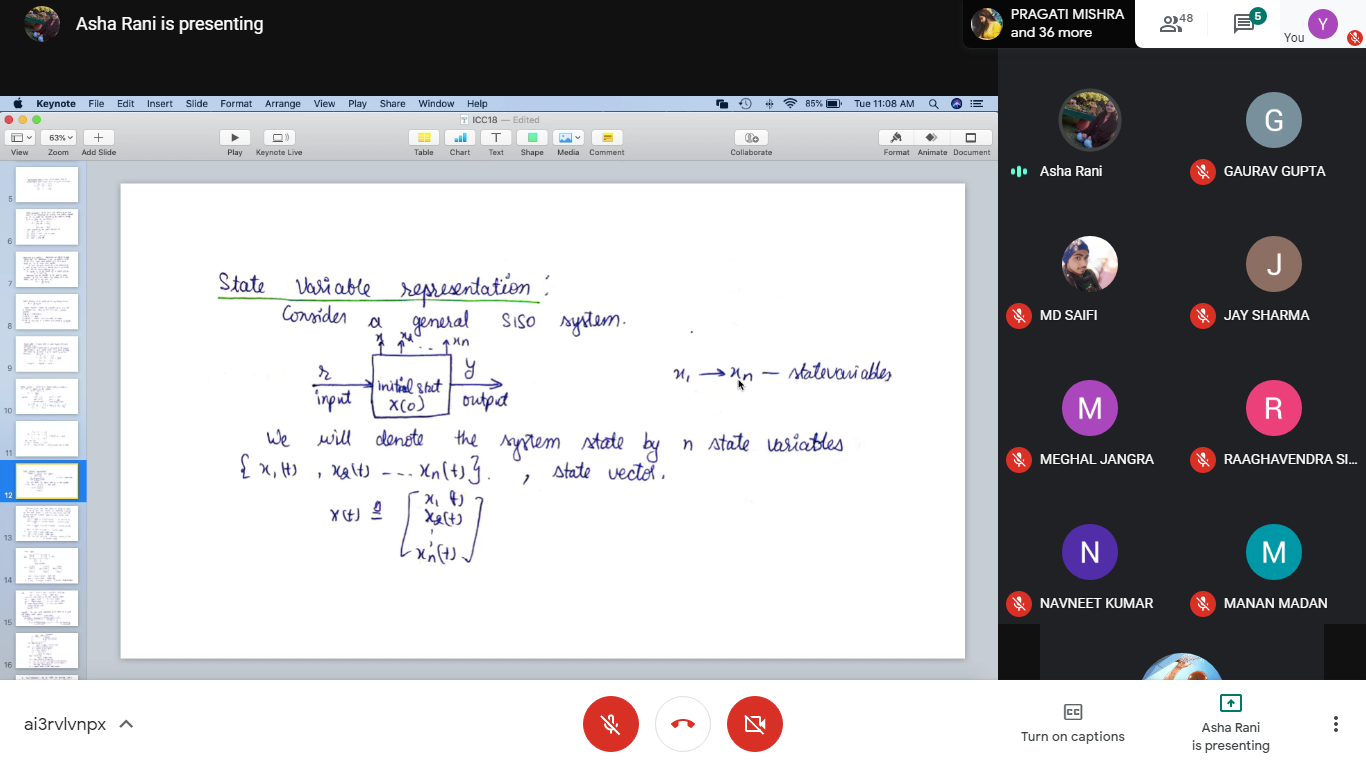 Asha Rani is presenting
PRAGATI MISHRA
and 36 more
48
5
You
Y
Keynote File Edit Insert Slide Format Arrange View Play Share Window Help
85% Tue 11:08 AM
ICC18 — Edited
63%
View Zoom Add Slide
Play Keynote Live
Table Chart Text Shape Media Comment
Collaborate
Format Animate Document
5
6
7
8
9
10
11
12
13
14
15
16
State Variable representation :
Consider a general SISO system.
xn
r
input
initial stat
X(0)
y
output
x1 → xn — statevariables
We will denote the system state by n state variables
{ x1(t) , x2(t) ---- xn(t) }. , state vector.
x(t) ≜ [ x1(t)
x2(t)
xn(t) ]
Asha Rani
G
GAURAV GUPTA
MD SAIFI
J
JAY SHARMA
M
MEGHAL JANGRA
R
RAAGHAVENDRA SI...
N
NAVNEET KUMAR
M
MANAN MADAN
ai3rvlvnpx
CC
Turn on captions
Asha Rani
is presenting